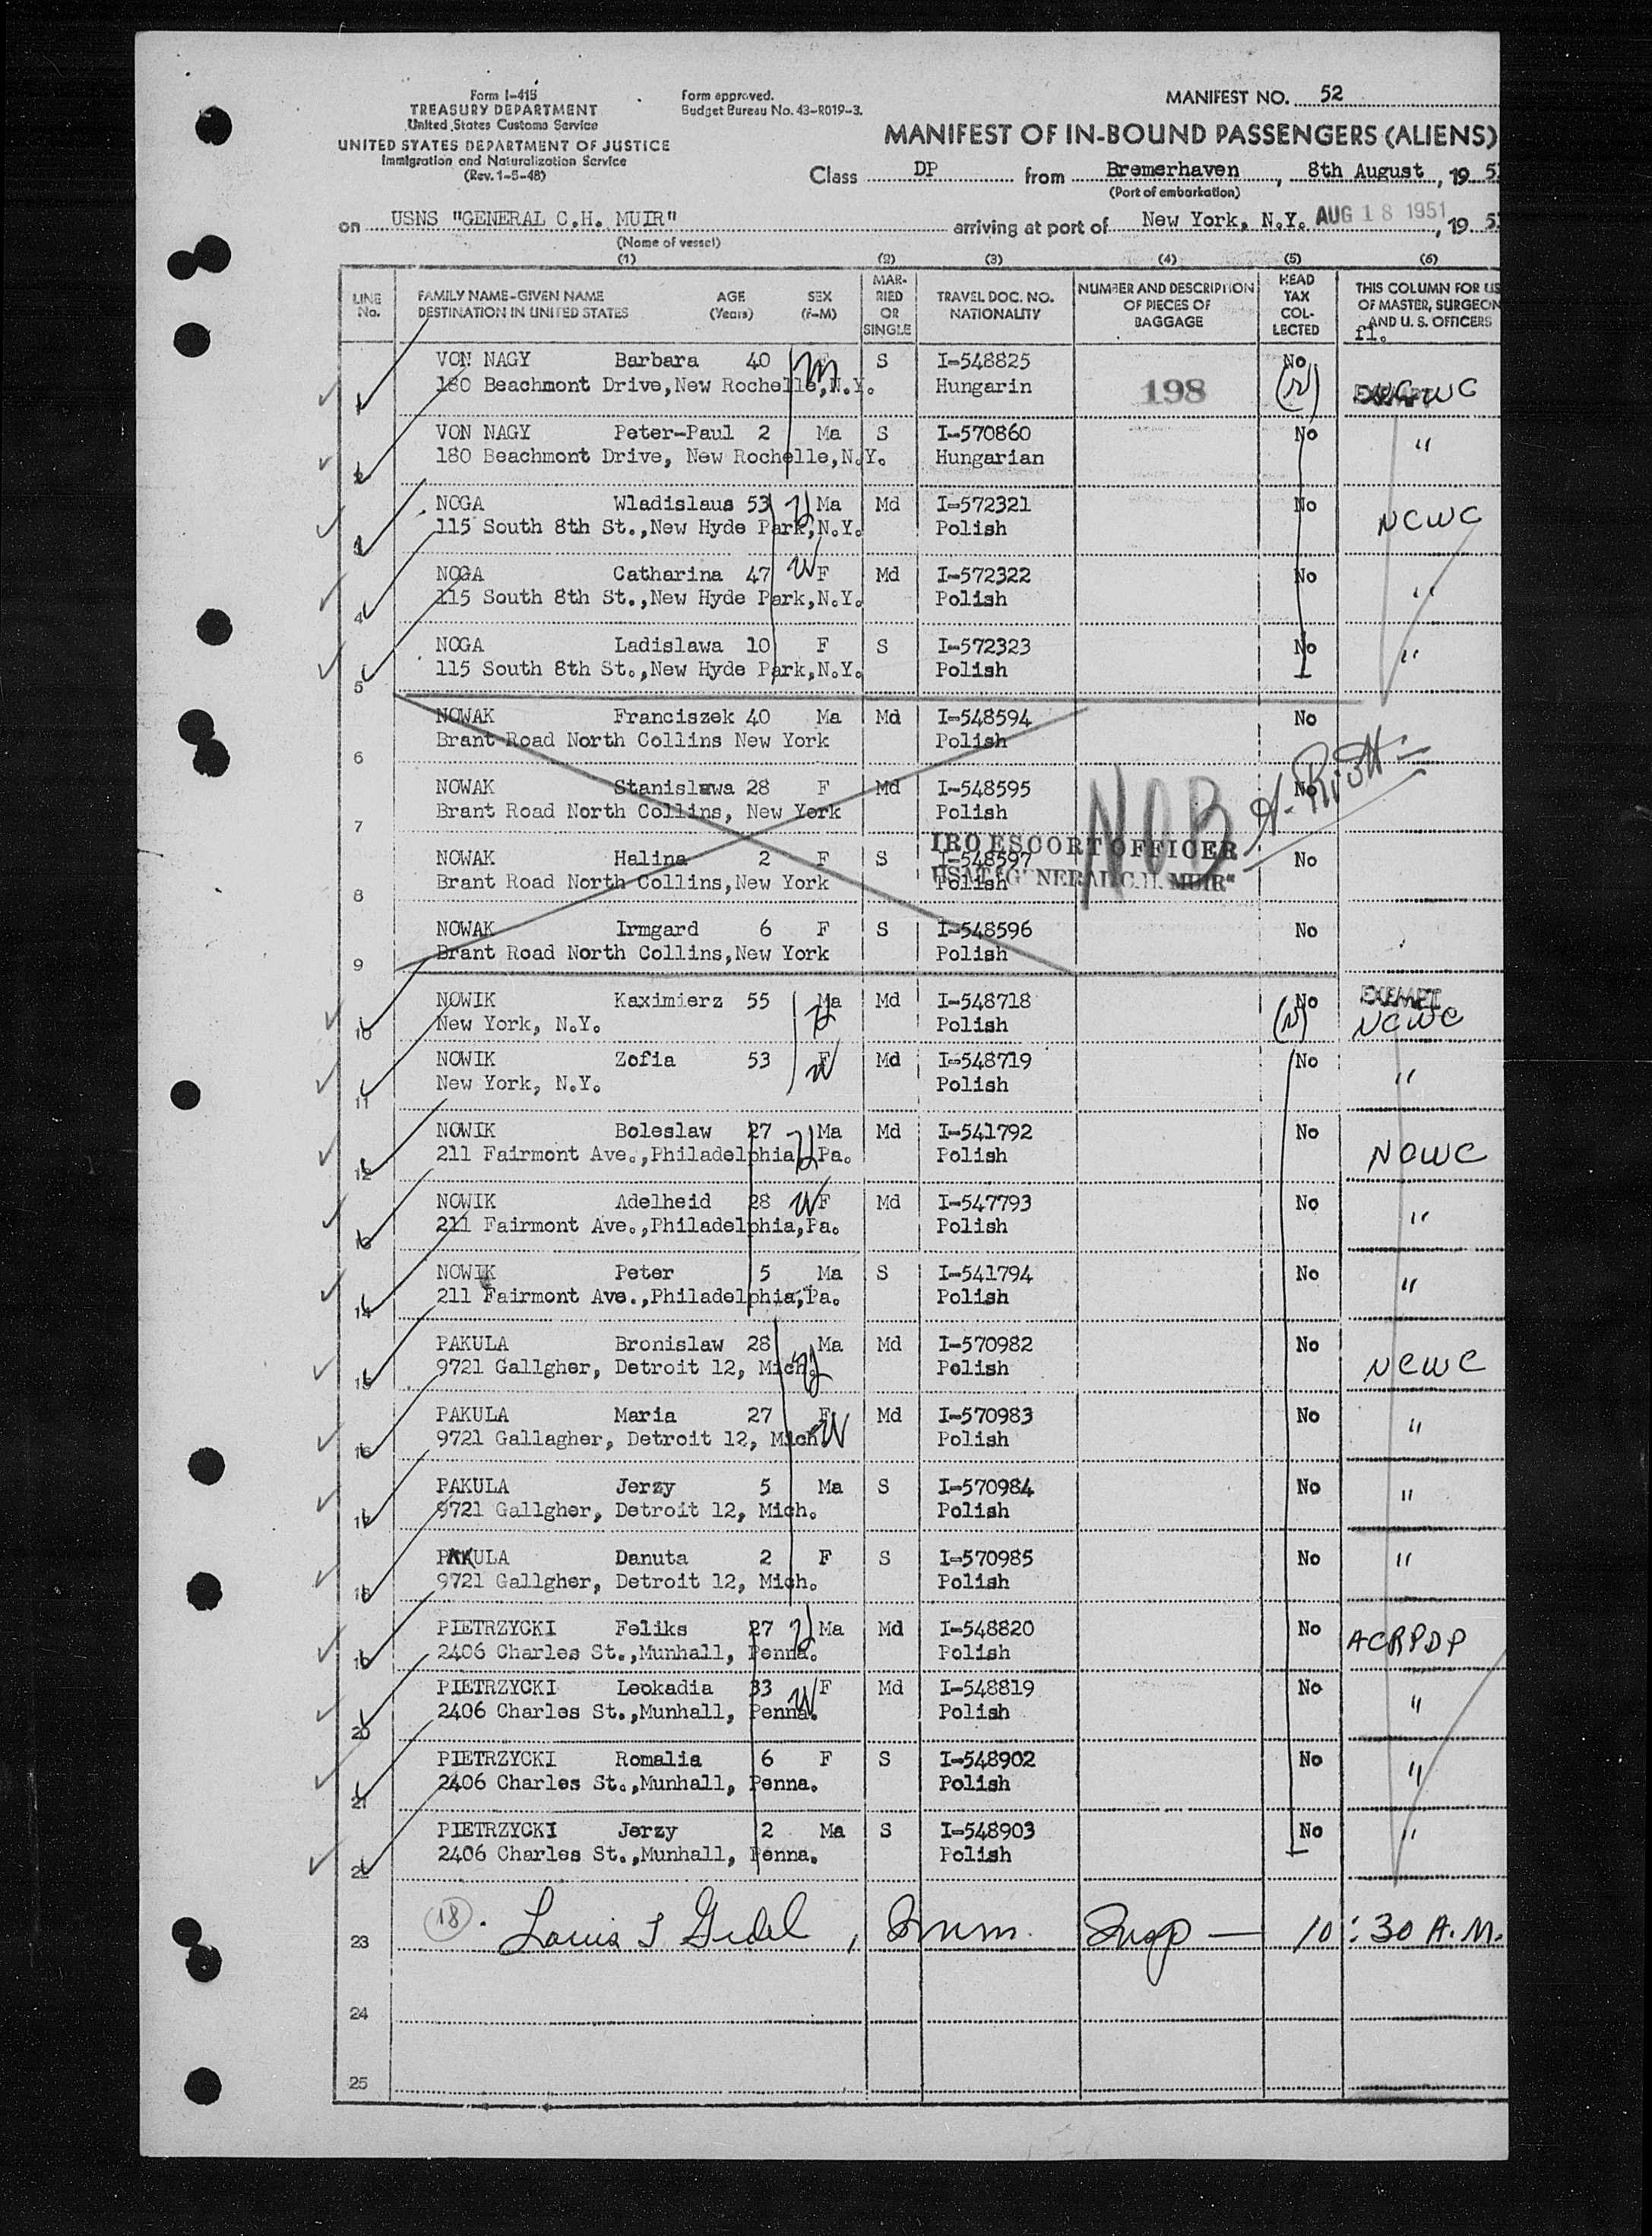 Form I-415
TREASURY DEPARTMENT
United States Customs Service
UNITED STATES DEPARTMENT OF JUSTICE
Immigration and Naturalization Service
(Rev. 1-5-48)
Form approved.
Budget Bureau No. 43-R019-3.
MANIFEST NO. 52
MANIFEST OF IN-BOUND PASSENGERS (ALIENS)
Class DP from Bremerhaven, 8th August, 19 5
(Port of embarkation)
on USNS "GENERAL C.H. MUIR" arriving at port of New York, N.Y. AUG 18 1951, 19 5
(Name of vessel)
(1) (2) (3) (4) (5) (6)
LINE No. FAMILY NAME-GIVEN NAME DESTINATION IN UNITED STATES AGE (Years) SEX (F-M) MARRIED OR SINGLE TRAVEL DOC. NO. NATIONALITY NUMBER AND DESCRIPTION OF PIECES OF BAGGAGE HEAD TAX COLLECTED THIS COLUMN FOR US OF MASTER, SURGEON AND U. S. OFFICERS
fl.
VON NAGY Barbara 40 S I-548825 No
1 180 Beachmont Drive,New Rochelle,N.Y. Hungarin 198 (N)
VON NAGY Peter-Paul 2 Ma S I-570860 No "
2 180 Beachmont Drive, New Rochelle,N.Y. Hungarian
NOGA Wladislaus 53 Ma Md I-572321 No NCWC
3 115 South 8th St.,New Hyde Park,N.Y. Polish
NOGA Catharina 47 F Md I-572322 No "
4 115 South 8th St.,New Hyde Park,N.Y. Polish
NOGA Ladislawa 10 F S I-572323 No "
5 115 South 8th St.,New Hyde Park,N.Y. Polish
NOWAK Franciszek 40 Ma Md I-548594 No
6 Brant Road North Collins New York Polish
NOWAK Stanislawa 28 F Md I-548595 No
7 Brant Road North Collins, New York Polish
NOB
IRO ESCORT OFFICER
NOWAK Halina 2 F S I-548597 No
8 Brant Road North Collins,New York Polish
USAT "GENERAL C.H. MUIR"
NOWAK Irmgard 6 F S I-548596 No
9 Brant Road North Collins,New York Polish
NOWIK Kaximierz 55 Ma Md I-548718 No EXEMPT
10 New York, N.Y. Polish (N) NCWC
NOWIK Zofia 53 F Md I-548719 No "
11 New York, N.Y. Polish
NOWIK Boleslaw 27 Ma Md I-541792 No NCWC
12 211 Fairmont Ave.,Philadelphia,Pa. Polish
NOWIK Adelheid 28 F Md I-547793 No "
13 211 Fairmont Ave.,Philadelphia,Pa. Polish
NOWIK Peter 5 Ma S I-541794 No "
14 211 Fairmont Ave.,Philadelphia,Pa. Polish
PAKULA Bronislaw 28 Ma Md I-570982 No NCWC
15 9721 Gallgher, Detroit 12, Mich. Polish
PAKULA Maria 27 F Md I-570983 No "
16 9721 Gallagher, Detroit 12, Mich. Polish
PAKULA Jerzy 5 Ma S I-570984 No "
17 9721 Gallgher, Detroit 12, Mich. Polish
PAKULA Danuta 2 F S I-570985 No "
18 9721 Gallgher, Detroit 12, Mich. Polish
PIETRZYCKI Feliks 27 Ma Md I-548820 No ACRPDP
19 2406 Charles St.,Munhall, Penna. Polish
PIETRZYCKI Leokadia 33 F Md I-548819 No "
20 2406 Charles St.,Munhall, Penna. Polish
PIETRZYCKI Romalia 6 F S I-548902 No "
21 2406 Charles St.,Munhall, Penna. Polish
PIETRZYCKI Jerzy 2 Ma S I-548903 No "
22 2406 Charles St.,Munhall, Penna. Polish
23 18 Louis Imm. Insp — 10:30 A.M.
24
25